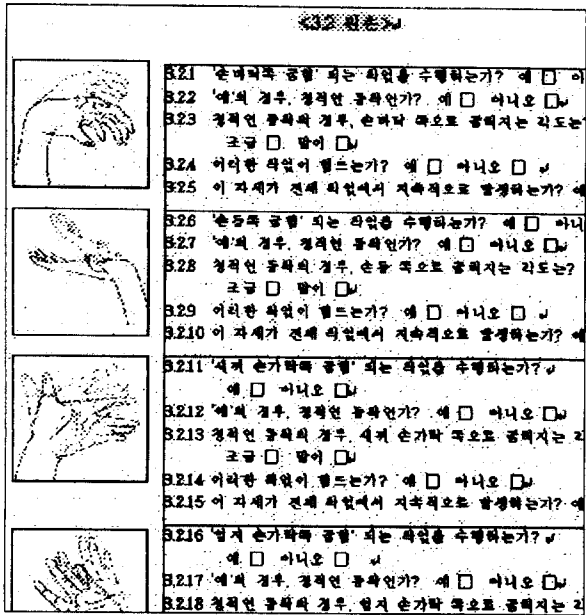 <3.2 왼손>↵
3.2.1 '손바닥쪽 굽힘' 되는 작업을 수행하는가? 예 □ 아
3.2.2 '예'의 경우, 정적인 동작인가? 예 □ 아니오 □↵
3.2.3 정적인 동작의 경우, 손바닥 쪽으로 굽혀지는 각도는?
조금 □ 많이 □↵
3.2.4 이러한 작업이 힘드는가? 예 □ 아니오 □ ↵
3.2.5 이 자세가 전체 작업에서 지속적으로 발생하는가? 예
3.2.6 '손등쪽 굽힘' 되는 작업을 수행하는가? 예 □ 아니
3.2.7 '예'의 경우, 정적인 동작인가? 예 □ 아니오 □↵
3.2.8 정적인 동작의 경우, 손등 쪽으로 굽혀지는 각도는?
조금 □ 많이 □↵
3.2.9 이러한 작업이 힘드는가? 예 □ 아니오 □ ↵
3.2.10 이 자세가 전체 작업에서 지속적으로 발생하는가? 예
3.2.11 '새끼 손가락쪽 굽힘' 되는 작업을 수행하는가? ↵
예 □ 아니오 □↵
3.2.12 '예'의 경우, 정적인 동작인가? 예 □ 아니오 □↵
3.2.13 정적인 동작의 경우, 새끼 손가락 쪽으로 굽혀지는 각
조금 □ 많이 □↵
3.2.14 이러한 작업이 힘드는가? 예 □ 아니오 □↵
3.2.15 이 자세가 전체 작업에서 지속적으로 발생하는가? 예
3.2.16 '엄지 손가락쪽 굽힘' 되는 작업을 수행하는가? ↵
예 □ 아니오 □ ↵
3.2.17 '예'의 경우, 정적인 동작인가? 예 □ 아니오 □↵
3.2.18 정적인 동작의 경우, 엄지 손가락 쪽으로 굽혀지는 각